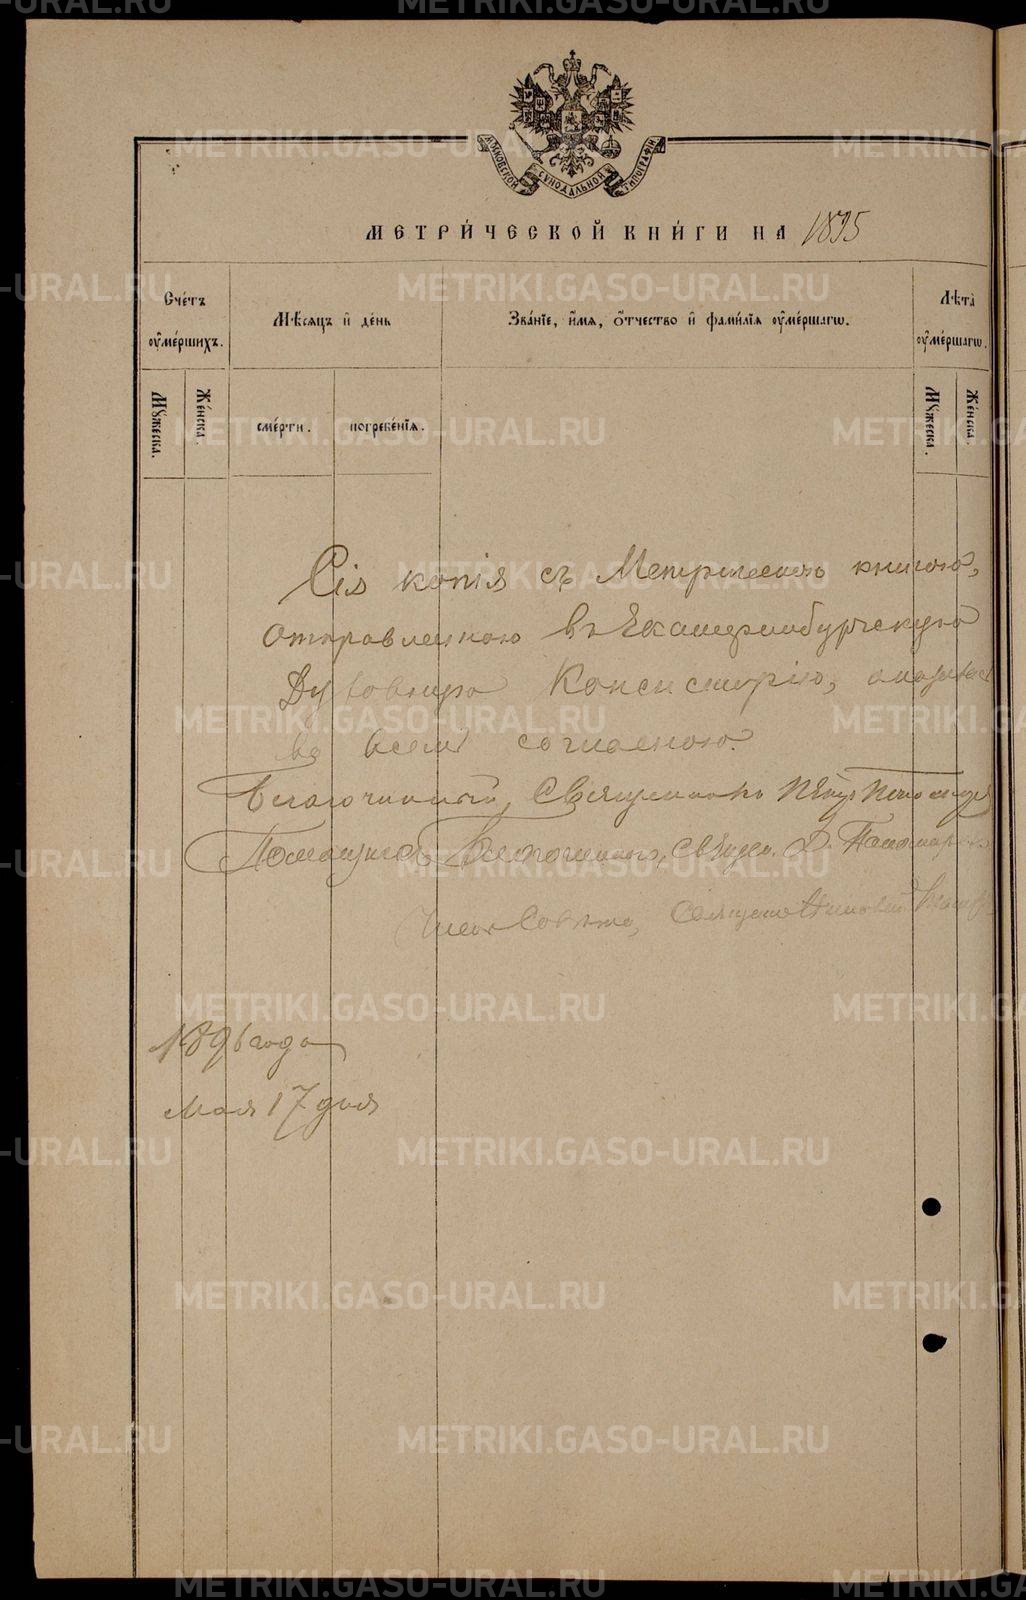 METRIKI.GASO-URAL.RU
МОСКОВСКОЙ СѴНОДАЛЬНОЙ ТИПОГРАФІИ
МЕТРИ́ЧЕСКОЙ КНИ́ГИ НА 1895
Сче́тъ ᲂу҆ме́ршихъ.
Мѣ́сѧцъ и҆ де́нь
Зва́нїе, и҆́мѧ, ѻ҆́тчество и҆ фами́лїѧ ᲂу҆ме́ршагѡ.
Лѣ́та ᲂу҆ме́ршагѡ.
Мꙋ́жеска.
Же́нска.
сме́рти.
погребе́нїѧ.
Мꙋ́жеска.
Же́нска.
Сія копія съ Метрическою книгою,
отправленною въ Екатеринбургскую
Духовную Консисторію, оказалась
во всемъ согласною.
Благочинный, Священникъ Петръ
Помощникъ Благочиннаго, Священ. Д. Пономаревъ
Членъ Совѣта, Священ
1896 года
мая 17 дня